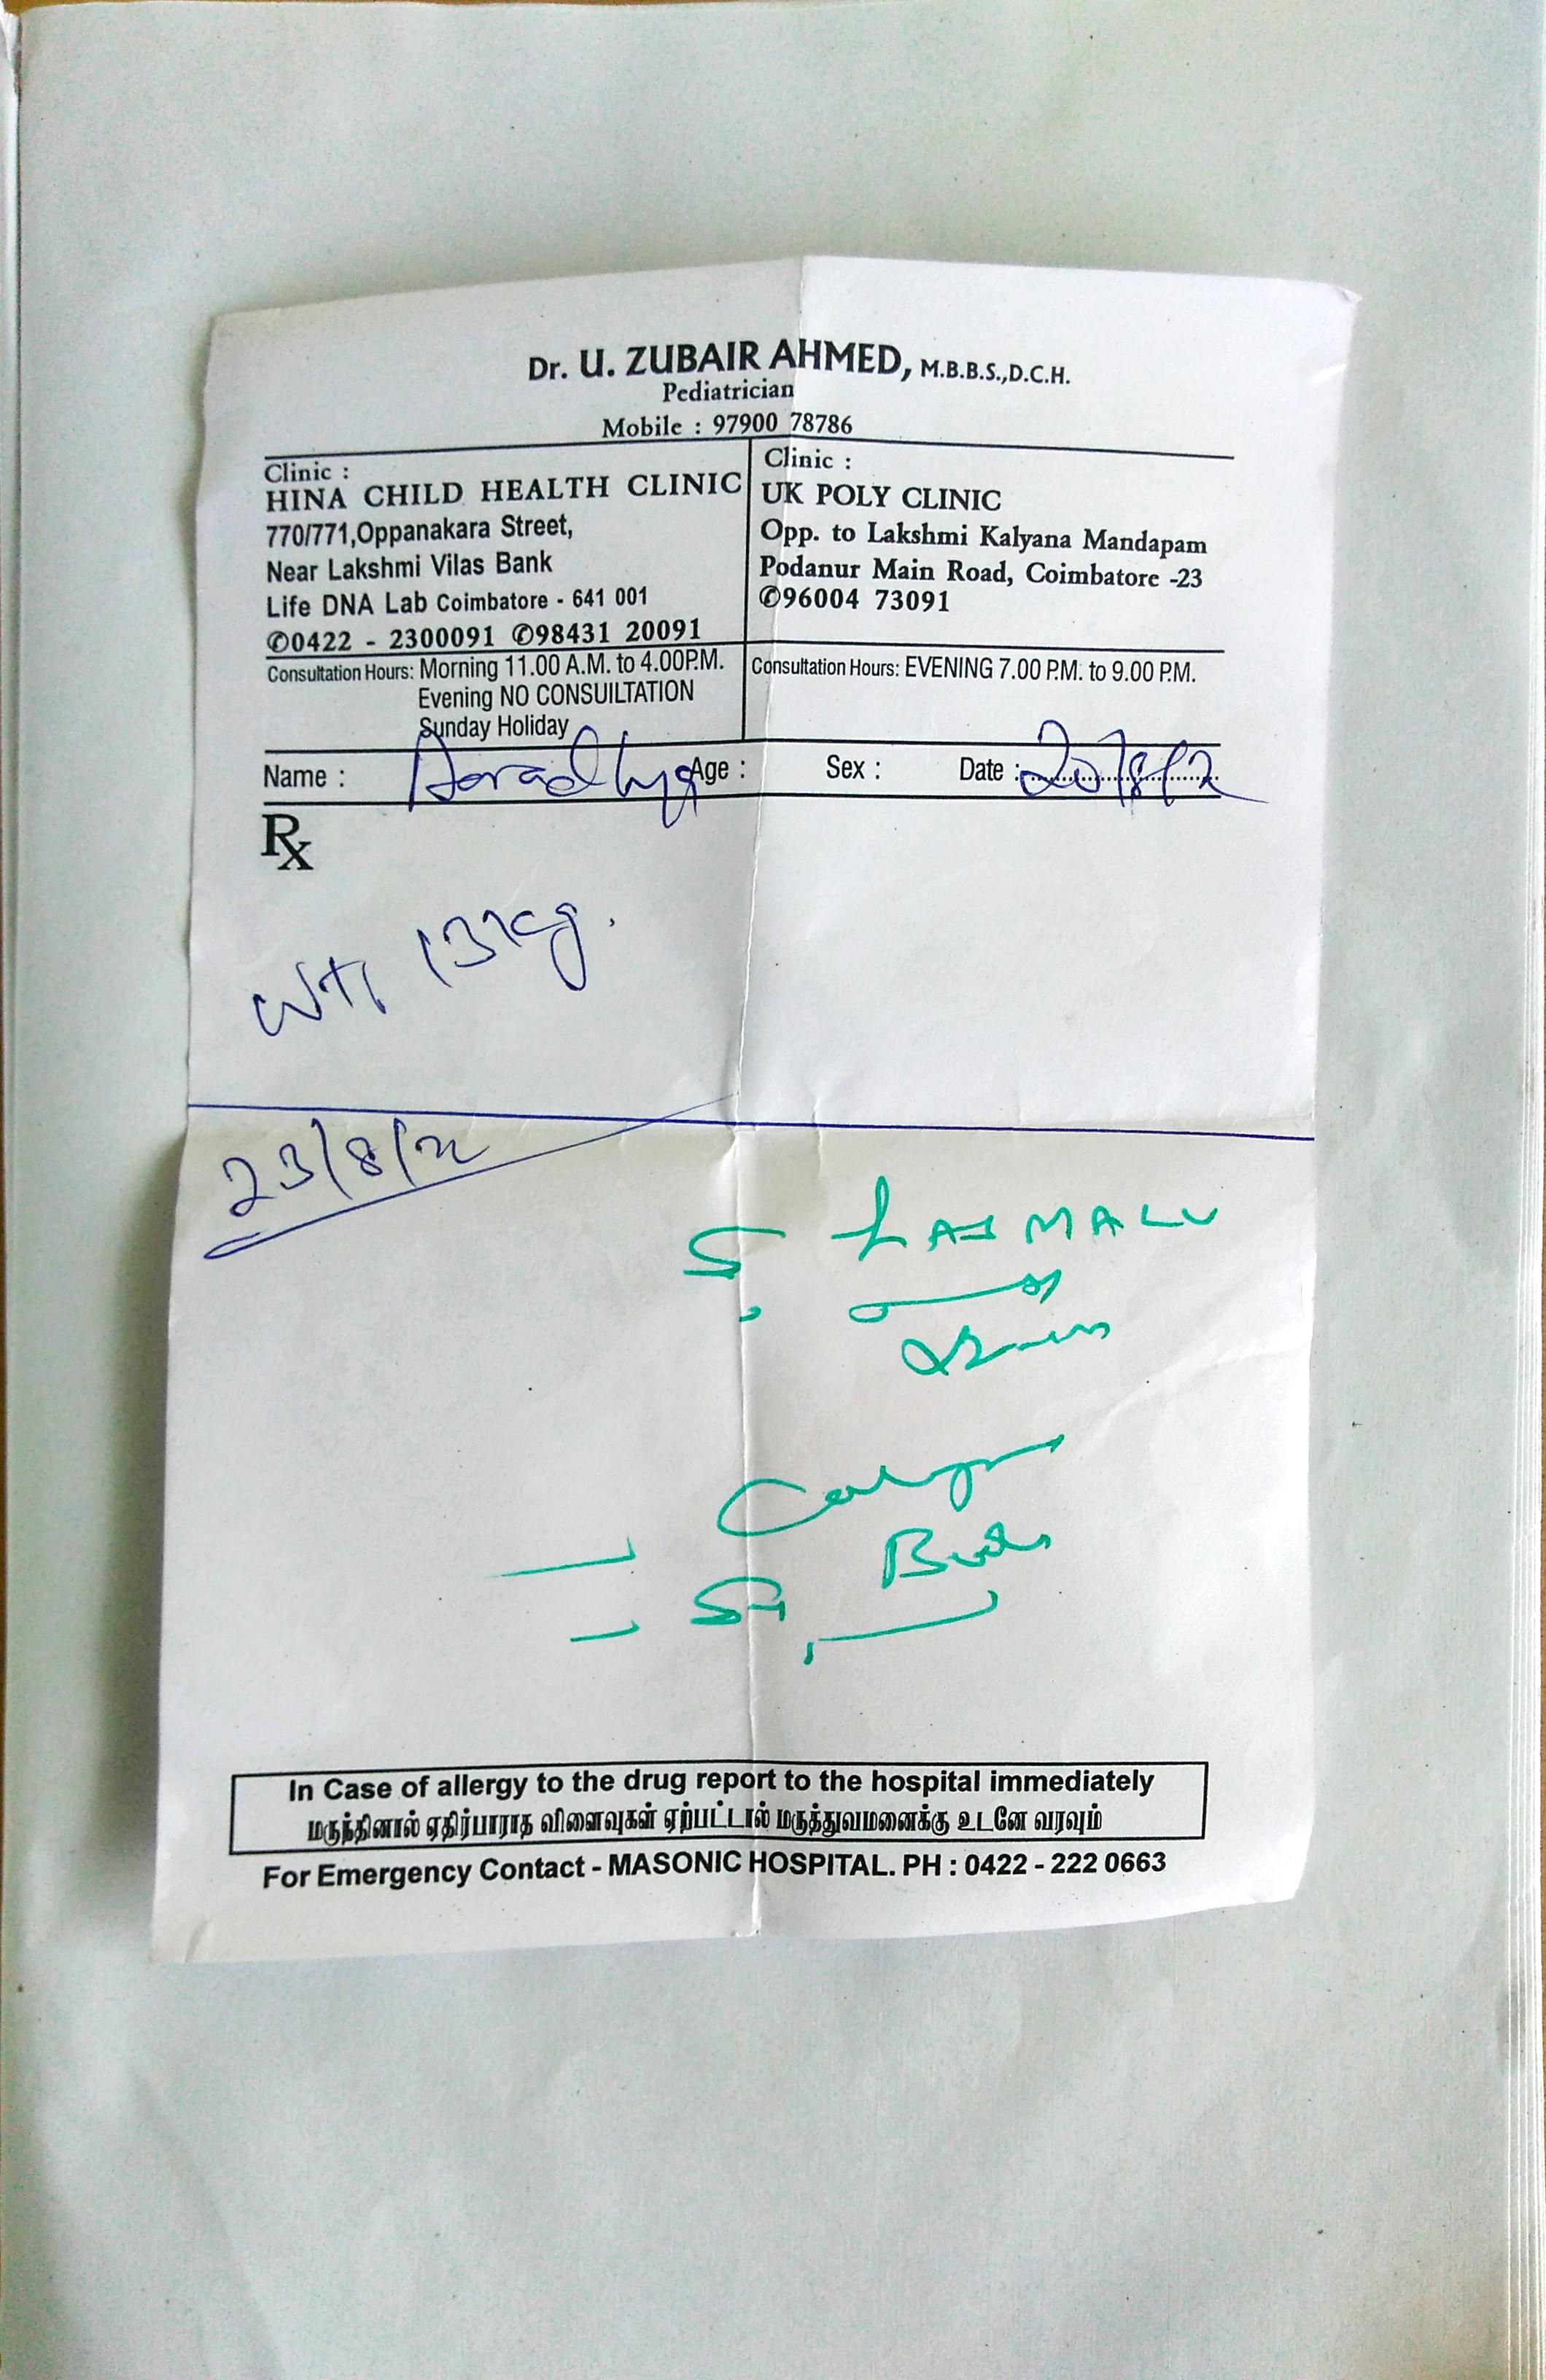 Dr. U. ZUBAIR AHMED, M.B.B.S.,D.C.H.
Pediatrician
Mobile : 97900 78786
Clinic :
HINA CHILD HEALTH CLINIC
770/771,Oppanakara Street,
Near Lakshmi Vilas Bank
Life DNA Lab Coimbatore - 641 001
✆0422 - 2300091 ✆98431 20091
Consultation Hours: Morning 11.00 A.M. to 4.00P.M.
Evening NO CONSUILTATION
Sunday Holiday
Clinic :
UK POLY CLINIC
Opp. to Lakshmi Kalyana Mandapam
Podanur Main Road, Coimbatore -23
✆96004 73091
Consultation Hours: EVENING 7.00 P.M. to 9.00 P.M.
Name : Aaradhya Age : Sex : Date : 20/8/
Rx
Wt 13kg.
23/8/
In Case of allergy to the drug report to the hospital immediately
மருந்தினால் ஏதிர்பாராத விளைவுகள் ஏற்பட்டால் மருத்துவமனைக்கு உடனே வரவும்
For Emergency Contact - MASONIC HOSPITAL. PH : 0422 - 222 0663